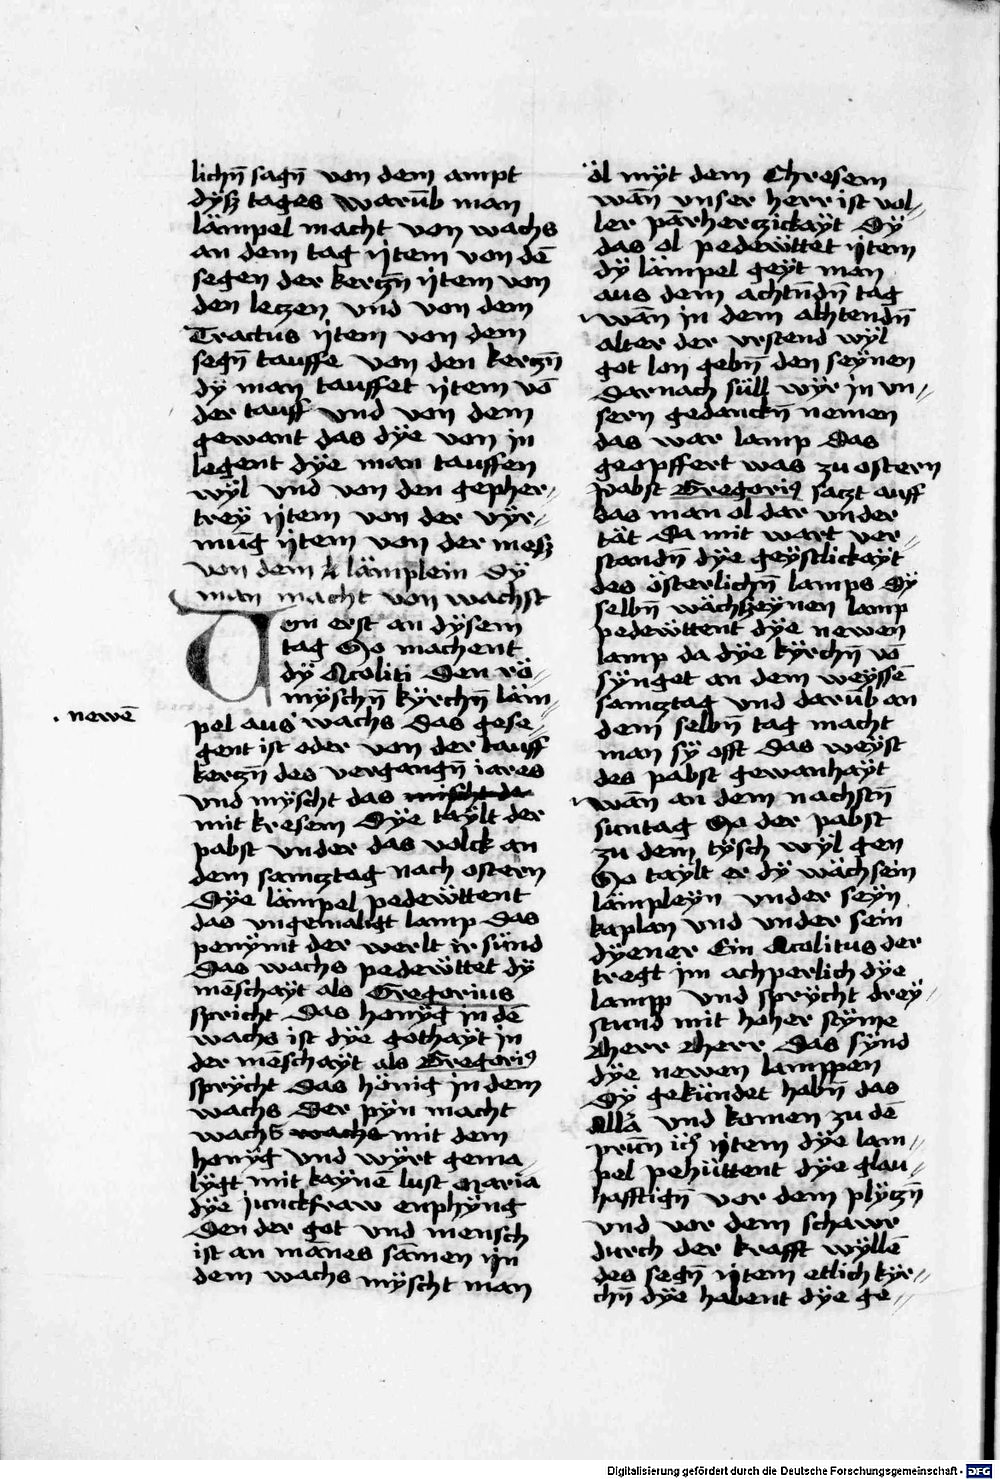 lichn̄ sagn̄ von dem ampt
dÿsz tages warūb man
lämpel macht von wachs
an dem tag ijtem von dē
segen der kerczn̄ ijtem von
den leczen vnd von dem
Tractus ijtem von dem
segn̄ tauffe von den kerczn̄
dÿ man tauffet ijtem vō
der tauff vnd von dem
gewant das dÿe von in
legent dÿe man tauffen
wÿl vnd von den gepher-
treÿ ijtem von der vÿr-
mūg ijtem von der mesz
von dem lämplein Dÿ
man macht von wachst
on erst an dÿsem
tag So machent
dÿ Acoliti Den rö-
mÿschn̄ kÿrchn̄ läm-
. newē
pel aus wachs Das gese-
gent ist oder von der tauff
kerczn̄ des vergangn̄ iares
vnd mÿscht das mischt da
mit kresem Dÿe taÿlt der
pabst vnder das volck an
dem samcztag nach ostern
Dÿe lämpel pedewttent
das vngemaligt lamp Das
penÿmt der werlt ir sünd
Das wachs pedewttet dÿ
mēschaÿt als Gregorius
spricht Das honÿg in dē
wachs ist dÿe gothaÿt in
der mēschaÿt als Gregori9
sprÿcht Das hönig in dem
wachs Der pÿn macht
wachs wachs mit dem
honÿg vnd wÿrt gema-
lÿgt mit kaÿnē lust Maria
dÿe junckfraw enphÿng
Den der got vnd mensch
ist an mānes sāmen ijn
dem wachs mÿscht man
öl mÿt dem Chresem
wān vnser herr ist vol-
ler parherczickaÿt Dÿ
das ol pedewttet ijtem
dÿ lämpel geÿt man
aus dem achtn̄dn̄ tag
wān in dem alhtendn̄
alter der vrstend wÿl
got lon gebn̄ den seÿnen
Darnach süll wÿr in vn-
sern gedanckn̄ nemen
das war lamp Das
geopffert was zu ostern
pabst Gregori9 saczt auff
das man ol dar vnder
tät Da mit wart ver-
standn̄ dÿe geÿstlickaÿt
des österlichn̄ lamps Dÿ
selbn̄ wächszeÿnen lamp
pedewttent dÿe newen
lamp da dÿe kÿrchn̄ vō
sÿnget an dem weÿssē
samcztag vnd darūb an
dem selbn̄ tag macht
man sÿ offt Das weÿst
des pabst gewanhaÿt
wān an dem nachstn̄
suntag So der pabst
zu dem tÿsch wÿl gen
So taÿlt er dÿ wächsein
lämpleÿn vnder seÿn
kaplan vnd vnder sein
dÿener Ein Acolitus der
tregt im achperlich dÿe
lampp vnd sprÿcht dreÿ-
stund mit hoher stÿme
Herr Herr Das sÿnd
dÿe newen lamppen
Dÿ gekündet habn̄ das
Alla vnd komen zu dē
prun̄ ijtem dÿe lam-
pel pehüttent dÿe glau-
hafftign̄ vor dem plÿczn̄
vnd vor dem schawr
durch der krafft wÿllē
des segn̄ ijtem etlich kÿr-
chn̄ dÿe habent dÿe ge-
Digitalisierung gefördert durch die Deutsche Forschungsgemeinschaft - DFG